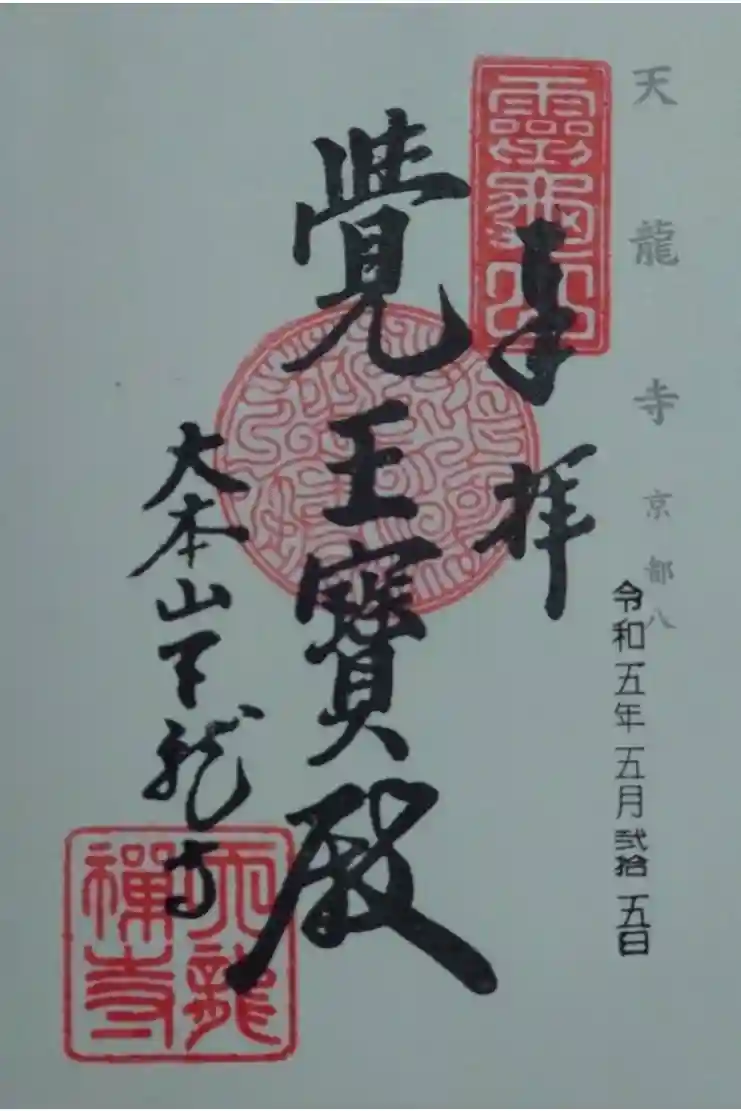 天龍寺 京都八
令和五年五月弐拾五日
靈龜山
奉拝
覺王寶殿
大本山天龍寺
天龍禪寺